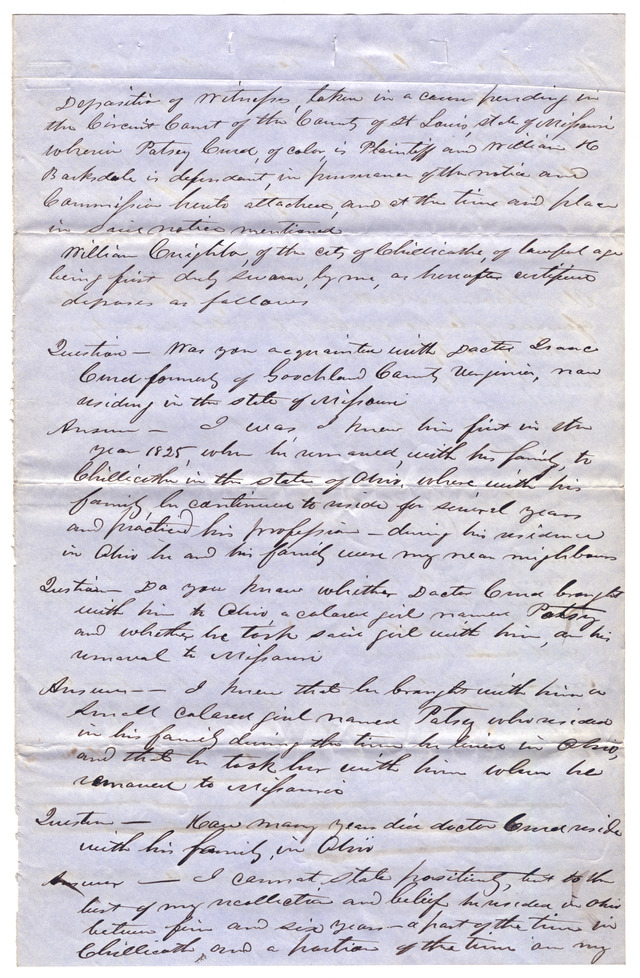 Deposition of Witnesses, taken in a cause pending in
the Circuit Court of the County of St Louis, State of Missouri
wherein Patsey Curd, of color, is Plaintiff and William H
Barksdale is defendant, in pursuance of the notice and
Commission hereto attached, and at the time and place
in said notice mentioned
William Creighton, of the city of Chillicothe, of lawful age
being first duly sworn, by me, as hereafter certified
deposes as follows
Question — Was you acquainted with Doctor Isaac
Curd formerly of Goochland County Virginia, now
residing in the state of Missouri
Answer — I was I knew him first in the
year 1825, when he removed with his family, to
Chillicothe in the state of Ohio, where with his
family, he continued to reside for several years
and practiced his profession — during his residence
in Ohio he and his family were my near neighbours
Question — Do you know whether Doctor Curd brought
with him to Ohio a colored girl named Patsey
and whether he took said girl with him, on his
removal to Missouri
Answer — I know that he brought with him a
small colored girl named Patsey who resided
in his family during the time he lived in Ohio,
and that he took her with him when he
removed to Missouri
Question — How many years did doctor Curd reside
with his family, in Ohio
Answer — I cannot state positively, but to the
best of my recollection and belief he resided in Ohio
between five and six years — a part of the time in
Chillicothe, and a portion of the time on my